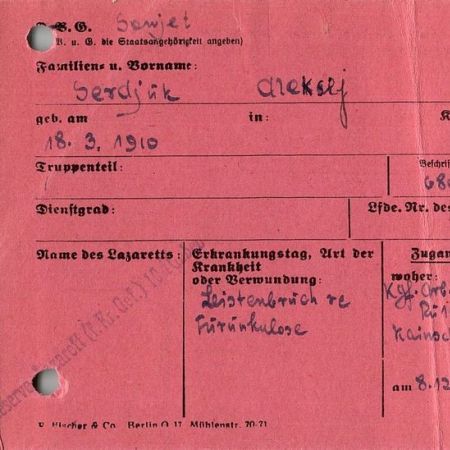 B. G. Sowjet
B. u. G. die Staatsangehörigkeit angeben)
Familien- u. Vorname:
Serdjuk Aleksej
geb. am in: K
18. 3. 1910
Truppenteil: Beschrif
686
Dienstgrad: Lfde. Nr. des
Name des Lazaretts: Erkrankungstag, Art der Zugan
Krankheit woher:
oder Verwundung: Kgf. Arb
Leistenbruch re
Furunkulose
am 8.12
R. Fischer & Co. Berlin O 17, Mühlenstr. 70-71